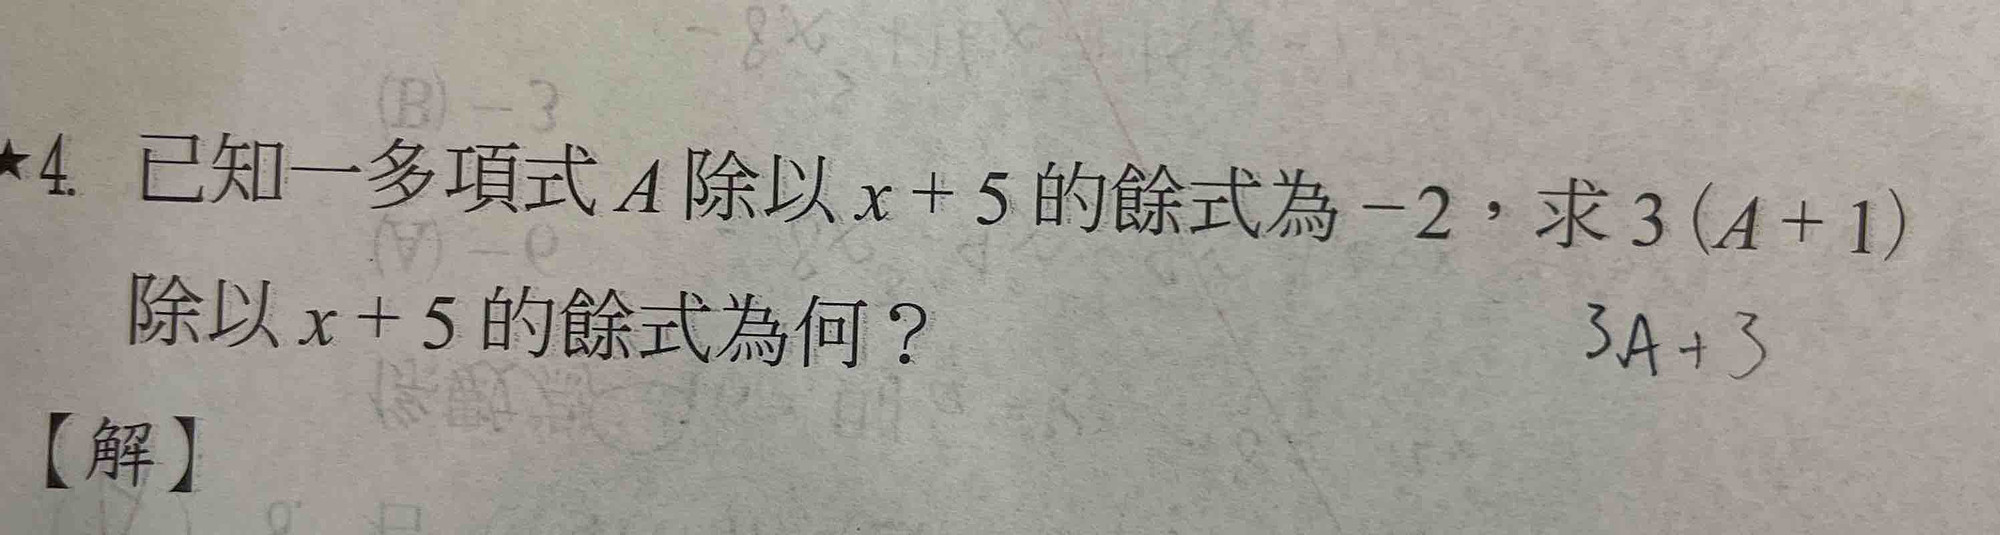 ★4. 已知一多項式 A 除以 x + 5 的餘式為 −2,求 3 (A + 1)
除以 x + 5 的餘式為何?
3A + 3
【解】